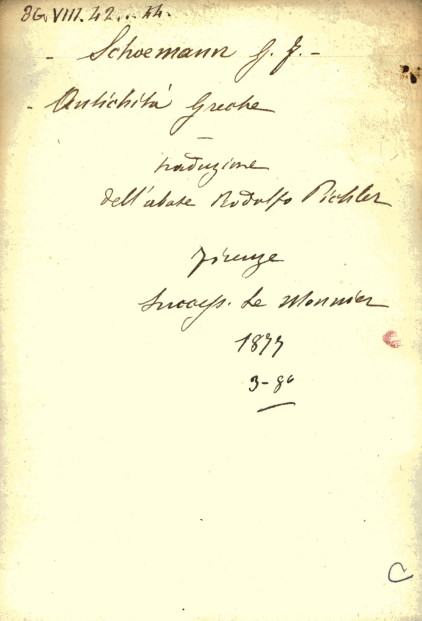 86.VIII.42...44.
- Schoemann G. F. -
- Antichità Greche
-
traduzione
dell'abate Rodolfo Pichler
Firenze
Success. Le Monnier
1877
3-8º
C